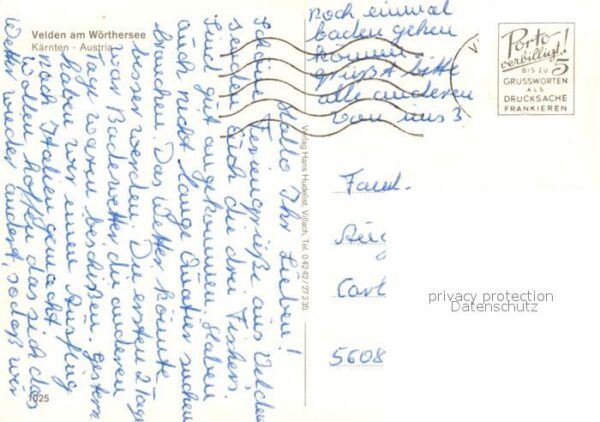 Velden am Wörthersee
Kärnten - Austria
Hallo Ihr Lieben!
Schöne Feriengrüße aus Velden
senden Euch die drei Fishers.
Sind gut angekommen. Haben
auch nicht lange Quatier suchen
brauchen. Das Wetter könnte
besser werden. Die ersten 2 Tage
war Badewetter die anderen
Tage waren beschißen. Gestern
haben wir einen Ausflug
nach Italien gemacht.
Wollen hoffen das sich das
Wetter wieder ändert, sodaß wir
noch einmal
baden gehen
können.
grüßt bitte
alle anderen
von uns 3
Verlag Hans Hudelist, Villach, Tel. 0 42 42 / 27 3 35
Porto
verbilligt!
BIS ZU 5
GRUSSWORTEN
ALS
DRUCKSACHE
FRANKIEREN
Faml.
Aug
Carl
5608
privacy protection
Datenschutz
1025